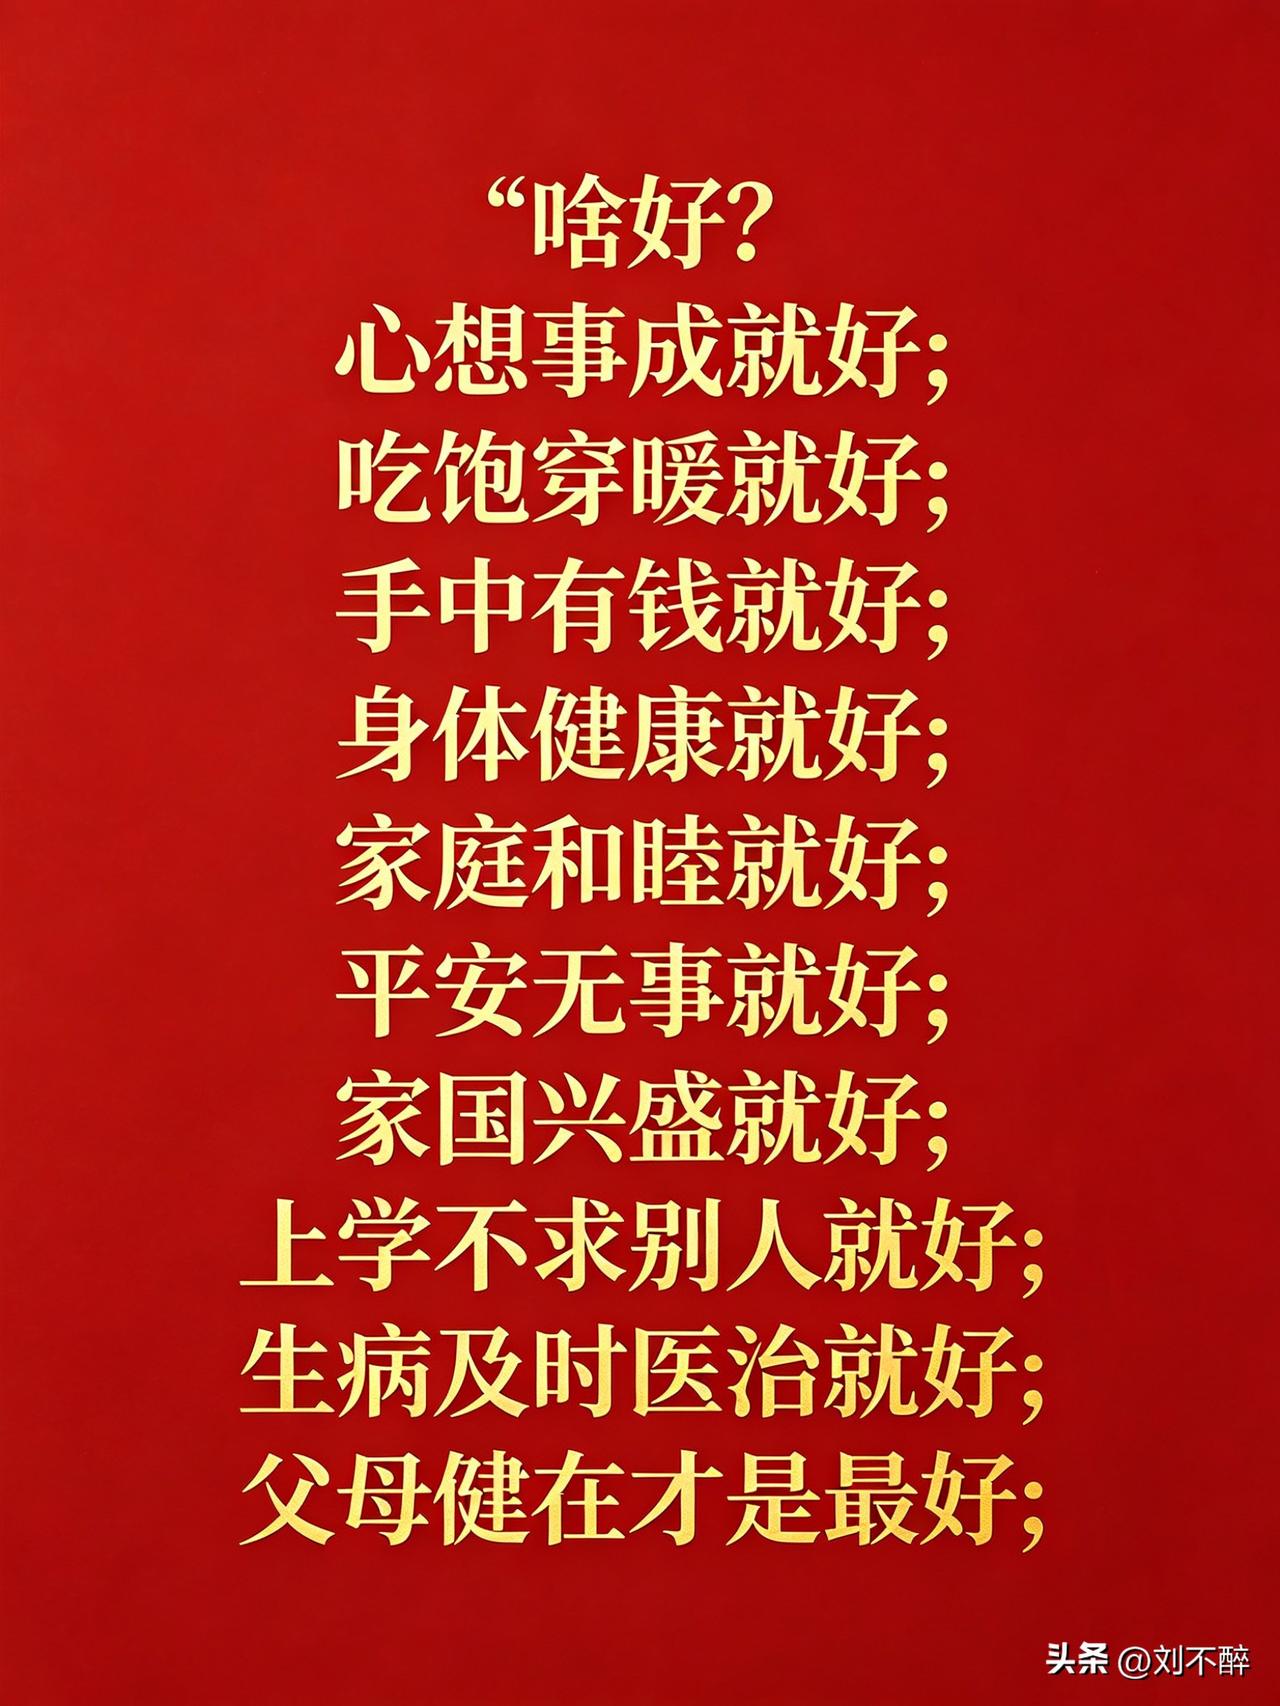 “啥好？
心想事成就好；
吃饱穿暖就好；
手中有钱就好；
身体健康就好；
家庭和睦就好；
平安无事就好；
家国兴盛就好；
上学不求别人就好；
生病及时医治就好；
父母健在才是最好；
头条 @刘不醉